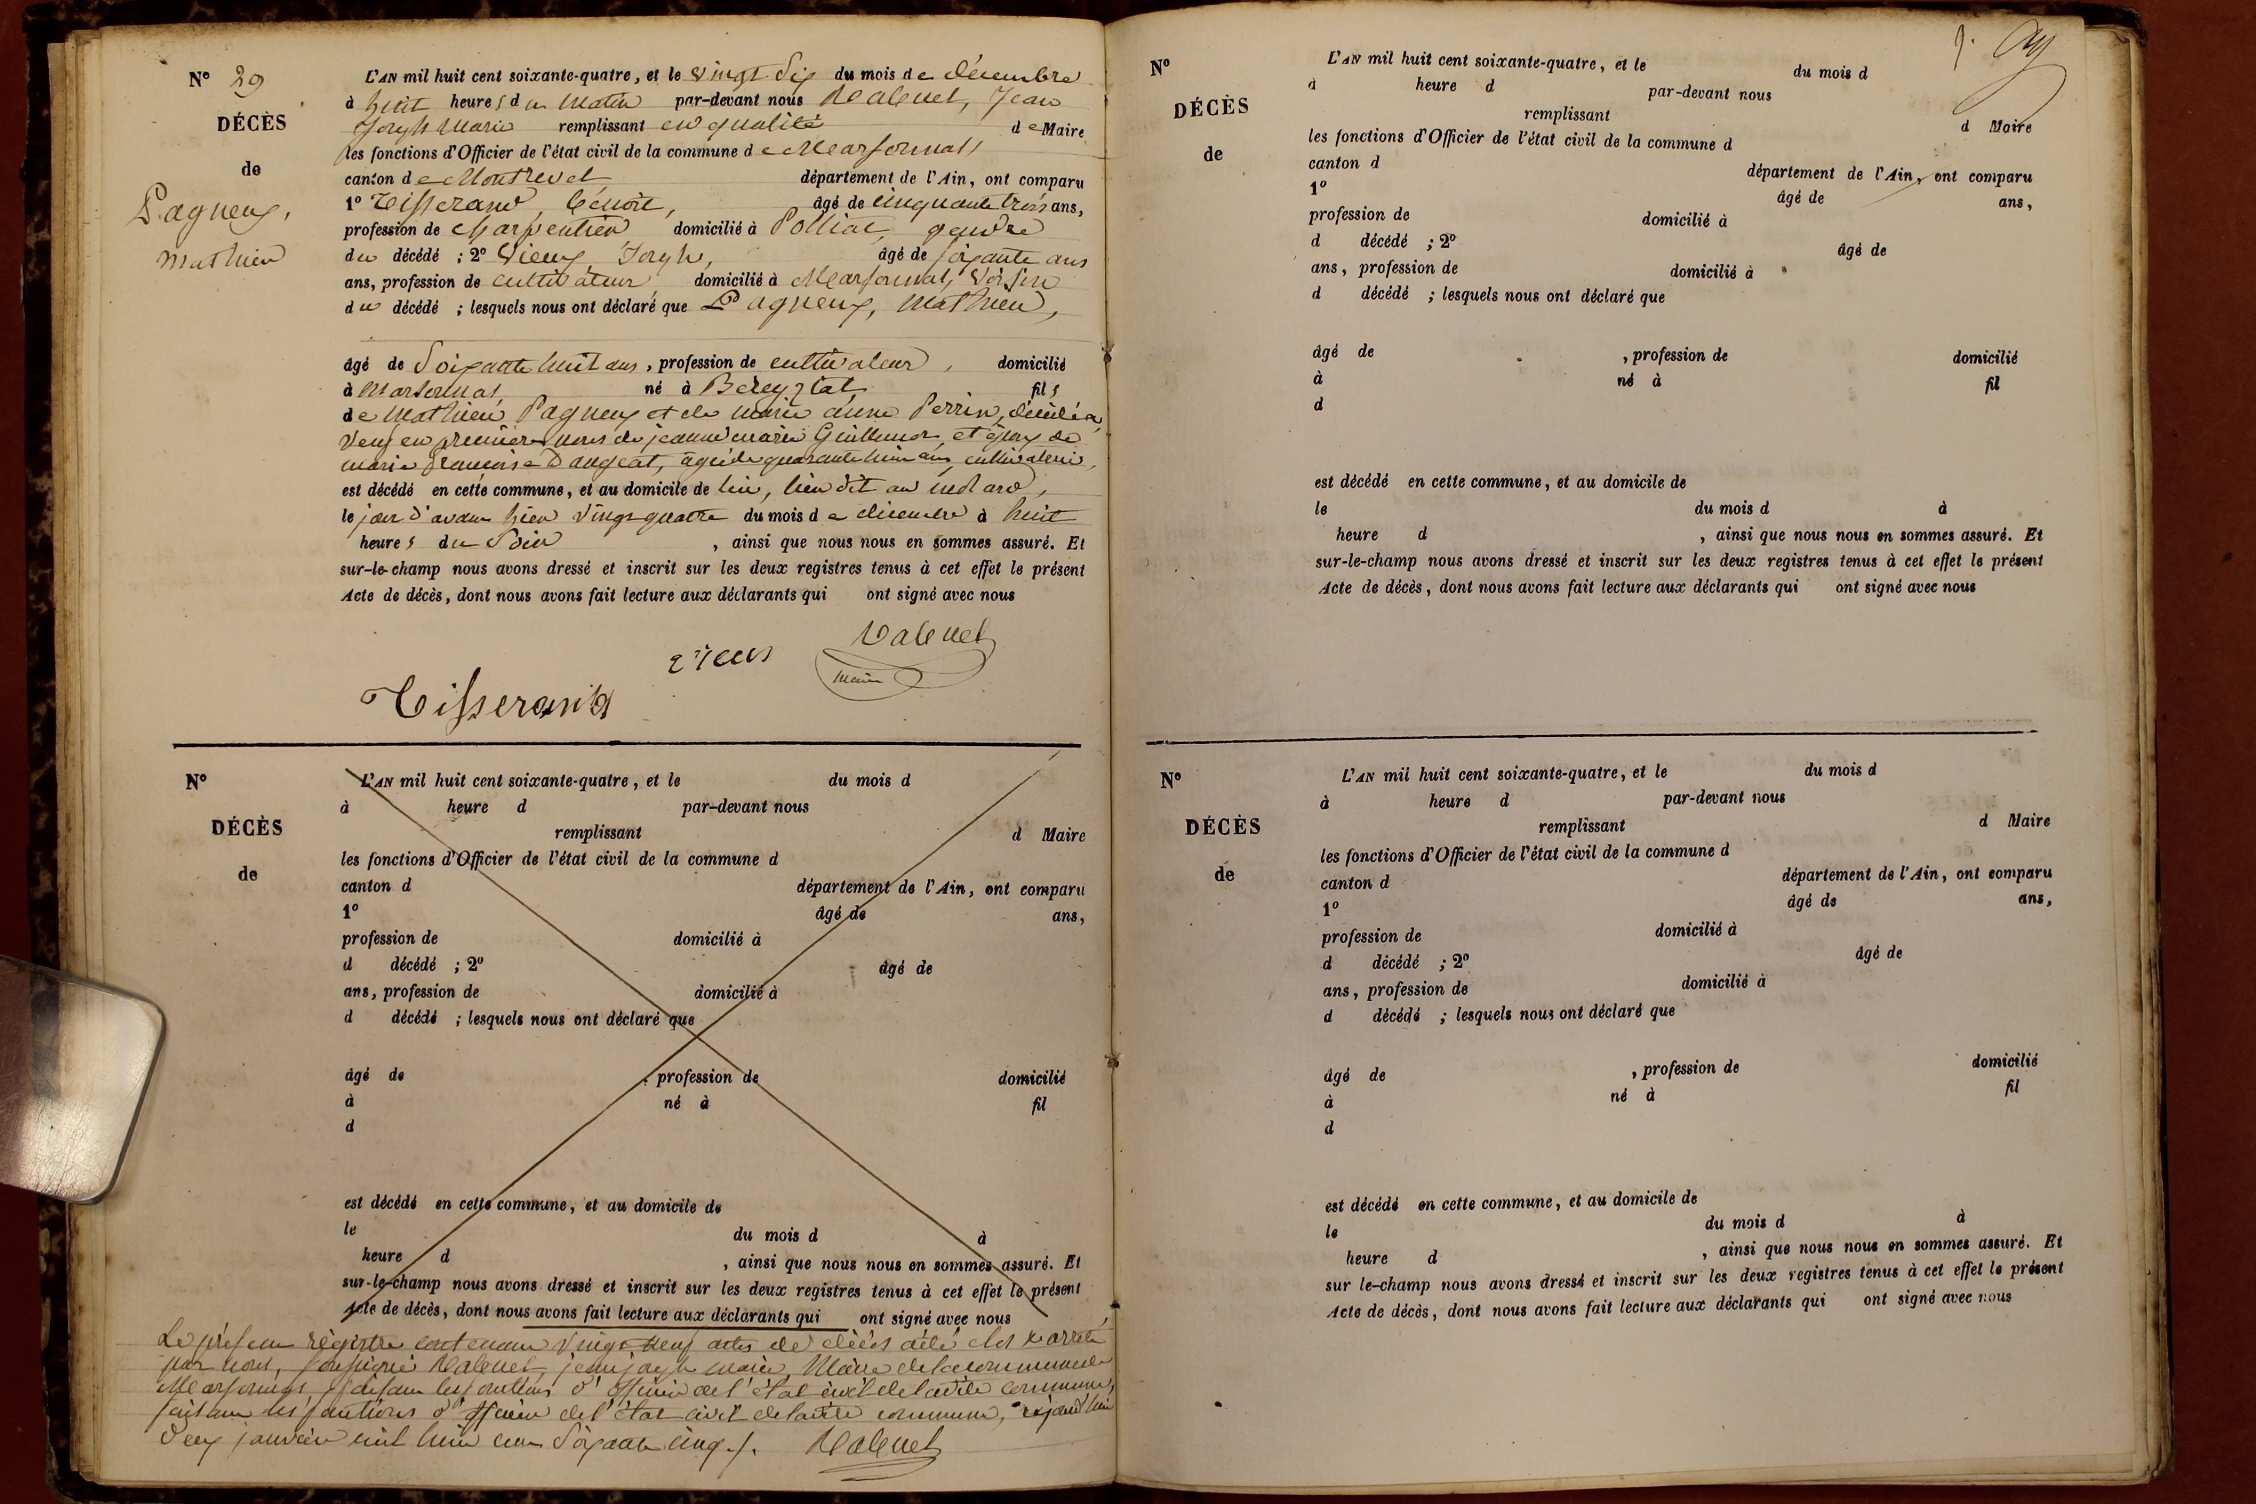 N° 29
DÉCÈS
de
Pagneux,
Mathieu
L'AN mil huit cent soixante-quatre, et le vingt Six du mois de décembre
à huit heures du matin par-devant nous Jean
Joseph Marie remplissant en qualité de Maire
les fonctions d'Officier de l'état civil de la commune de Marsonnas
canton de Montrevel département de l'Ain, ont comparu
1° Tisserand, Benoît, âgé de cinquante trois ans,
profession de charpentier domicilié à Polliat, gendre
du décédé ; 2° Vieux, Joseph, âgé de soixante ans
ans, profession de cultivateur domicilié à Marsonnas, Voisin
du décédé ; lesquels nous ont déclaré que Pagneux, Mathieu,
âgé de Soixante huit ans, profession de cultivateur, domicilié
à Marsonnas, né à Béréyziat, fils
de Mathieu Pagneux et de Marie Anne Perrin, décédés,
Veuf en premières noces de jeanne marie et époux de
marie françoise Dangeat, âgée de quarante huit ans, cultivatrice,
est décédé en cette commune, et au domicile de lui, lieu dit au
le jour d'avant hier vingt quatre du mois de décembre à huit
heures du Soir, ainsi que nous nous en sommes assuré. Et
sur-le-champ nous avons dressé et inscrit sur les deux registres tenus à cet effet le présent
Acte de décès, dont nous avons fait lecture aux déclarants qui ont signé avec nous
Vieux
Maire
Tisserand
N°
DÉCÈS
de
L'AN mil huit cent soixante-quatre, et le du mois d
à heure d par-devant nous
remplissant d Maire
les fonctions d'Officier de l'état civil de la commune d
canton d département de l'Ain, ont comparu
1° âgé de ans,
profession de domicilié à
d décédé ; 2° âgé de
ans, profession de domicilié à
d décédé ; lesquels nous ont déclaré que
âgé de , profession de domicilié
à né à fil
d
est décédé en cette commune, et au domicile de
le du mois d à
heure d , ainsi que nous nous en sommes assuré. Et
sur-le-champ nous avons dressé et inscrit sur les deux registres tenus à cet effet le présent
Acte de décès, dont nous avons fait lecture aux déclarants qui ont signé avec nous
Le présent registre contenant vingt neuf actes de décès a été clos & arrêté
par nous, soussigné jean joseph marie, Maire de la commune de
Marsonnas, faisant les fonctions d'officier de l'état civil de ladite commune,
faisant les fonctions d'officier de l'état civil de ladite commune, aujourd'hui
deux janvier mil huit cent soixante cinq ./.
N°
DÉCÈS
de
L'AN mil huit cent soixante-quatre, et le du mois d
à heure d par-devant nous
remplissant d Maire
les fonctions d'Officier de l'état civil de la commune d
canton d département de l'Ain, ont comparu
1° âgé de ans,
profession de domicilié à
d décédé ; 2° âgé de
ans, profession de domicilié à
d décédé ; lesquels nous ont déclaré que
âgé de , profession de domicilié
à né à fil
d
est décédé en cette commune, et au domicile de
le du mois d à
heure d , ainsi que nous nous en sommes assuré. Et
sur-le-champ nous avons dressé et inscrit sur les deux registres tenus à cet effet le présent
Acte de décès, dont nous avons fait lecture aux déclarants qui ont signé avec nous
N°
DÉCÈS
de
L'AN mil huit cent soixante-quatre, et le du mois d
à heure d par-devant nous
remplissant d Maire
les fonctions d'Officier de l'état civil de la commune d
canton d département de l'Ain, ont comparu
1° âgé de ans,
profession de domicilié à
d décédé ; 2° âgé de
ans, profession de domicilié à
d décédé ; lesquels nous ont déclaré que
âgé de , profession de domicilié
à né à fil
d
est décédé en cette commune, et au domicile de
le du mois d à
heure d , ainsi que nous nous en sommes assuré. Et
sur le-champ nous avons dressé et inscrit sur les deux registres tenus à cet effet le présent
Acte de décès, dont nous avons fait lecture aux déclarants qui ont signé avec nous